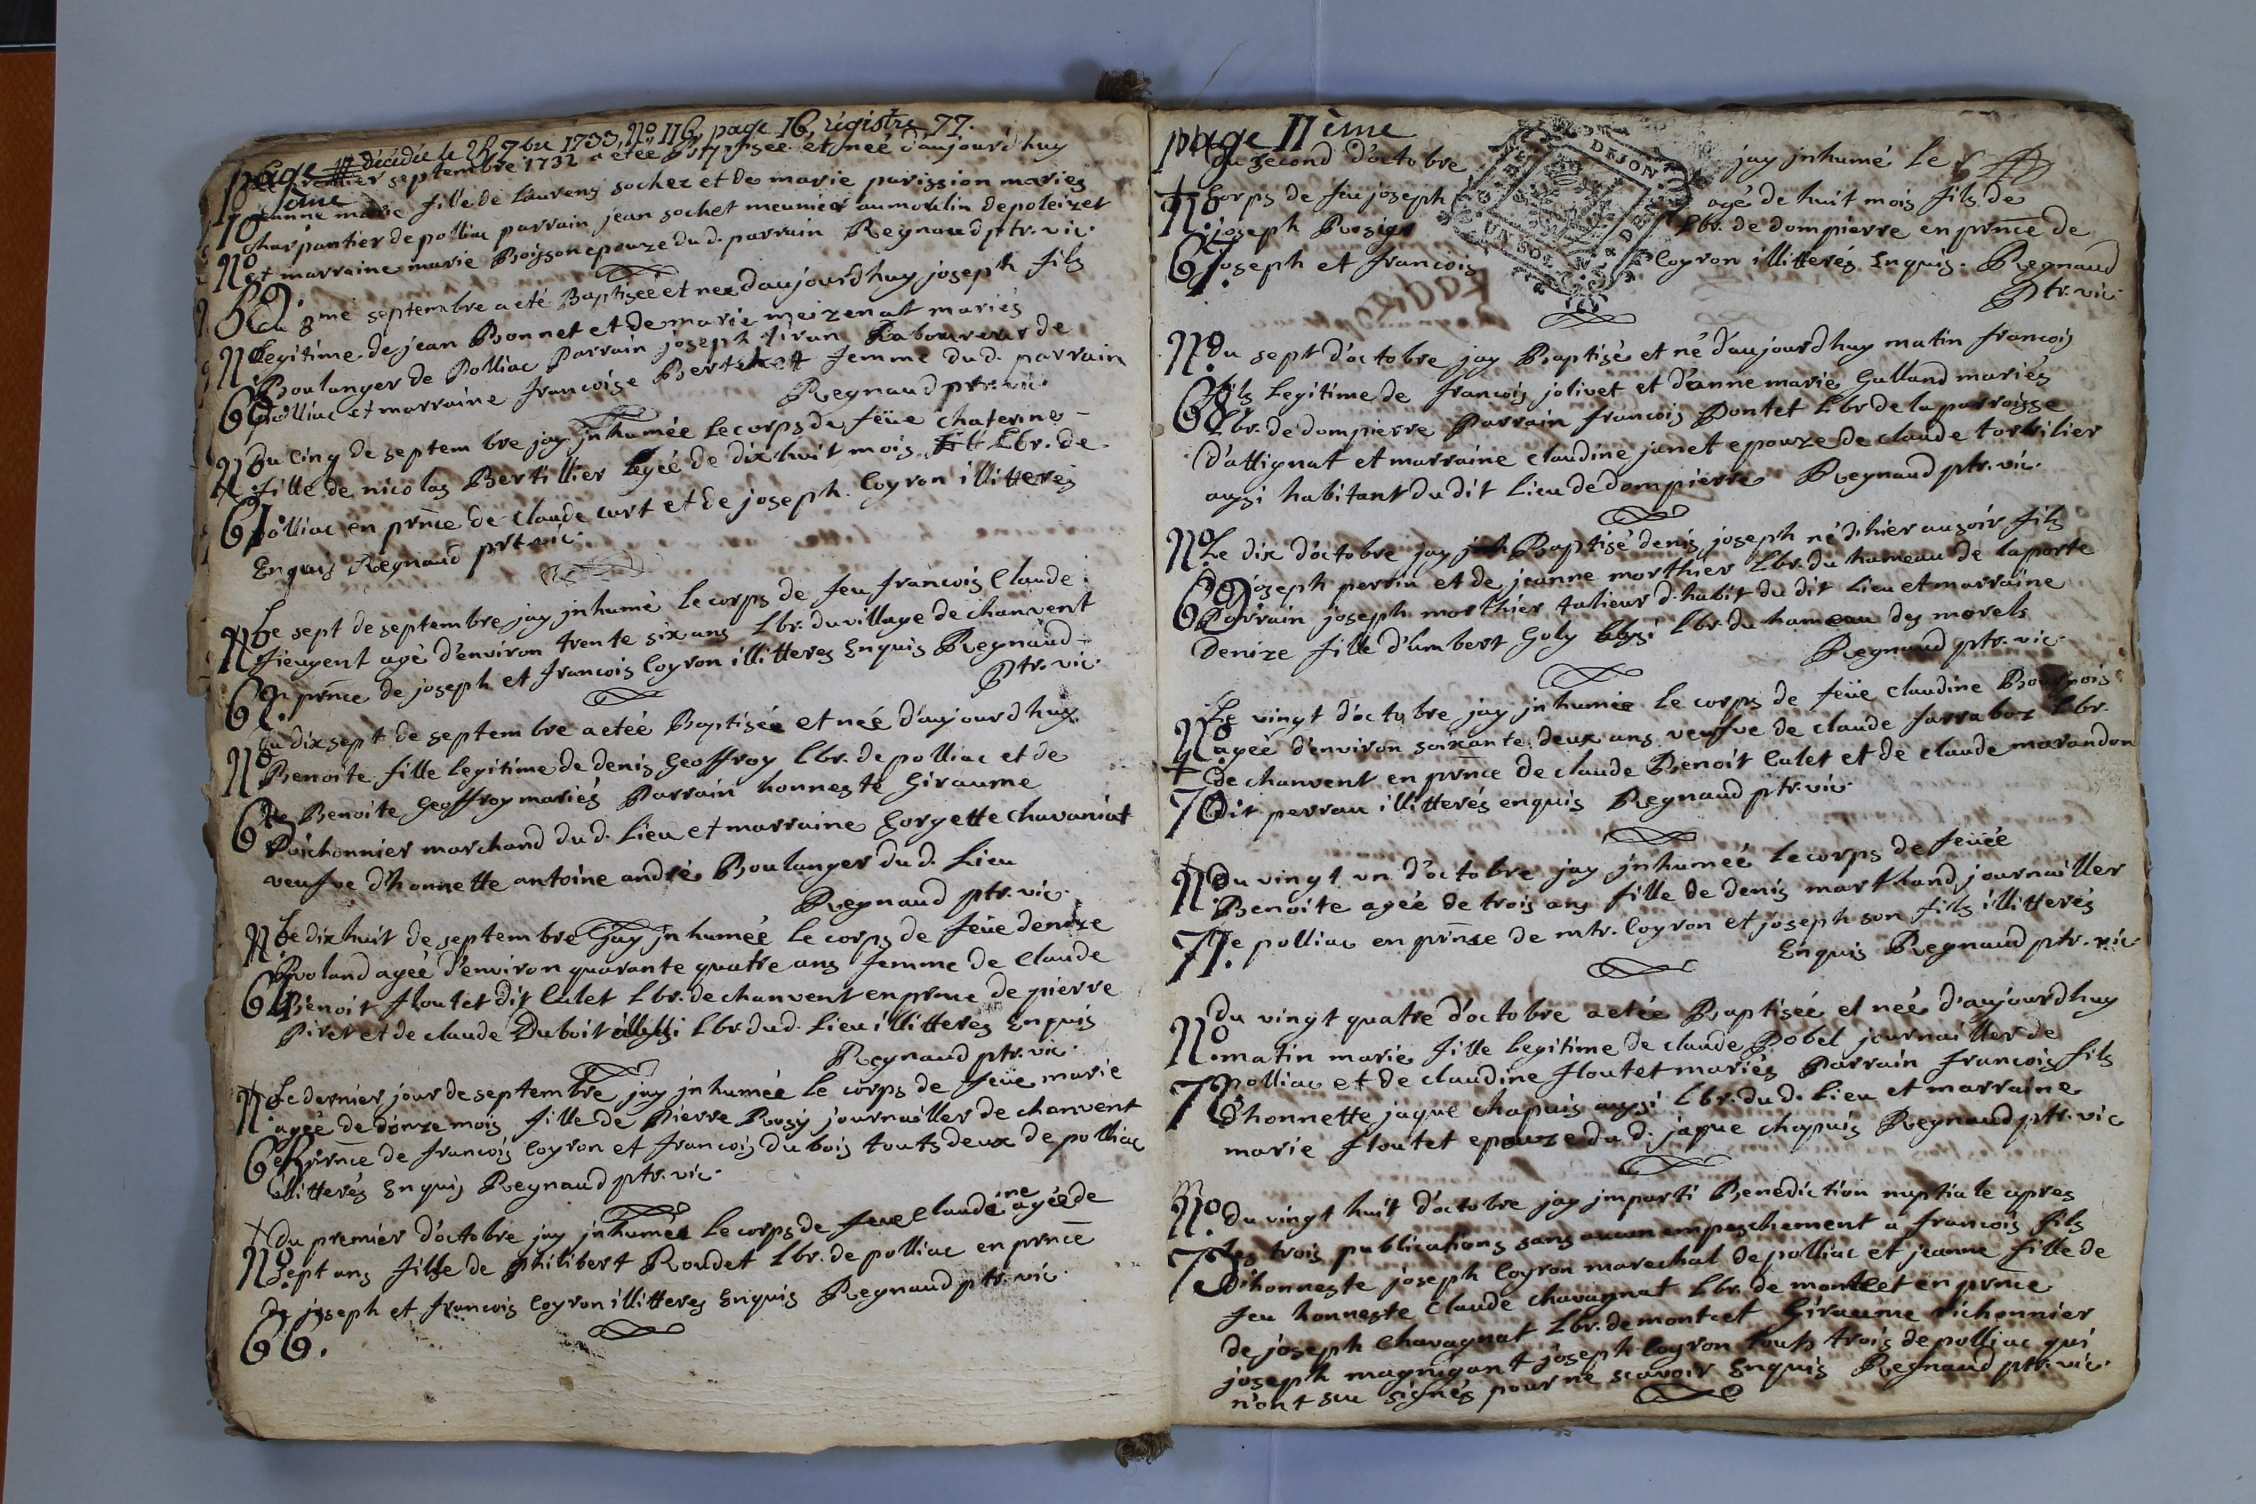 décédée le 28 7bre 1733, No 116, page 16, registre 77.
page
10 ème
premier septembre 1732 a eteé Baptiseé et neé d'aujourdhuy
jeanne marie fille de Laurens sochet et de marie parission mariés
charpantier de polliac parrain jean sochet meunier au moulin de poleizet
No et marraine marie Boisson epouze du d. parrain Regnaud ptr. vic.
59.
du 3me septembre a eté Baptiseé et neé d'aujourdhuy joseph fils
No Legitime de jean Bonnet et de marie meizenat mariés
Boulanger de Polliac Parrain joseph tiran Laboureur de
60 polliac et marraine francoise femme du d. parrain
Regnaud ptr. vic.
Du Cinq de septembre jay jnhumée le corps de feüe Chaterine
No fille de nicolas Bertillier ageé de dix huit mois Lbr. de
61 polliac en prnce de claude curt et de joseph Coyron illitterés
Enquis Regnaud ptr vic.
Le sept de septembre jay jnhumé le corps de feu francois Claude
No fieugent agé d'environ trente six ans Lbr. du village de chanvent
62. en prnce de joseph et francois Coyron illitteres Enquis Regnaud
Ptr. vic.
du dix sept de septembre a eteé Baptiseé et neé d'aujourdhuy
No Benoite fille legitime de denis Geoffroy Lbr. de polliac et de
63 de Benoite Geoffroy mariés Parrain honneste Giraume
Vuichonnier marchand du d. Lieu et marraine Gorgette chavaniat
veufve d'honnette antoine andré Boulanger du d. Lieu
Regnaud ptr. vic.
No Le dix huit de septembre jay jnhumeé le corps de feüe denize
Broland ageé d'environ quarante quatre ans femme de Claude
64 Benoit floutet dit Culet Lbr. de chanvent en prnce de pierre
Piret et de claude Duboit aussi Lbr. du d. Lieu illitteres Enquis
Regnaud ptr. vic.
No Le dernier jour de septembre jay jnhumeé le corps de feüe marie
ageé de donze mois fille de Pierre Rosy journailler de chanvent
65 en prnce de francois Coyron et francois du bois touts deux de polliac
illitterés Enquis Regnaud ptr. vic.
† du premier d'octobre jay jnhumeé le corps de feue Claudine ageé de
No sept ans fille de Philibert Roudet Lbr. de polliac en prnce
de joseph et francois Coyron illitteres Enquis Regnaud ptr. vic.
66.
page 11ème
du second d'octobre jay jnhumé le
† No Corps de feu joseph agé de huit mois fils de
joseph Lbr. de dompierre en prnce de
67. joseph et francois Coyron illitterés Enquis. Regnaud
Ptr. vic.
DEJON
UN SOL
No du sept d'octobre jay Baptisé et né d'aujourdhuy matin francois
68. fils Legitime de francois jolivet et d'anne marie Galland mariés
Lbr. de dompierre Parrain francois Pontet Lbr de la parroisse
d'attignat et marraine claudine janet epouze de claude torbilier
aussi habitant du dit Lieu de dompierre Regnaud ptr. vic.
No Le dix d'octobre jay Baptisé denis joseph né d'hier au soir fils
69 joseph perrin et de jeanne morthier Lbr. du hameau de laporte
Parrain joseph morthier talieur d'habit du dit Lieu et marraine
Denize fille d'umbert Goly aussi Lbr. du hameau des morels
Regnaud ptr. vic.
Le vingt d'octobre jay jnhumeé le corps de feüe claudine
No ageé d'environ soixante deux ans veufve de claude farraboz Lbr.
† de chanvent en prnce de claude Benoit Culet et de claude marandon
70 dit perrau illitterés enquis Regnaud ptr. vic.
† No Du vingt un d'octobre jay jnhumeé le corps de feueé
Benoite ageé de trois ans fille de denis marthand journailler
71. de polliac en prnse de mtr. Coyron et joseph son fils illitterés
Enquis Regnaud ptr. vic
du vingt quatre d'octobre a eteé Baptiseé et neé d'aujourdhuy
No matin marie fille legitime de claude Pobel journailler de
polliac et de claudine floutet mariés Parrain francois fils
72 d'honnette jaque chapuis aussi Lbr. du d. Lieu et marraine
marie floutet epouze du d. jaque chapuis Regnaud ptr. vic
M
No. Du vingt huit d'octobre jay jmparti Benediction nuptiale apres
les trois publications sans aucun empeschement a francois fils
73 d'honneste joseph Coyron marechal de polliac et jeanne fille de
feu honneste Claude chavagnat Lbr. de montcet en prnce
de joseph Chavagnat Lbr. de montcet Giraume vichonnier
joseph magnigant joseph Coyron touts trois de polliac qui
n'ont seu signés pour ne scavoir Enquis Regnaud ptr. vic.